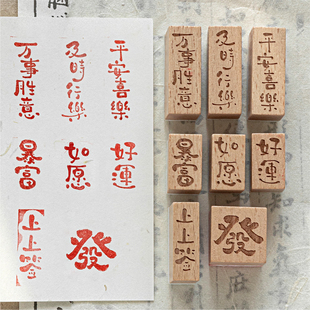 万事胜意
及時行樂
平安喜樂
暴富
如愿
好運
上上签
發
万事胜意
及時行樂
平安喜樂
暴富
如愿
好運
上上签
發